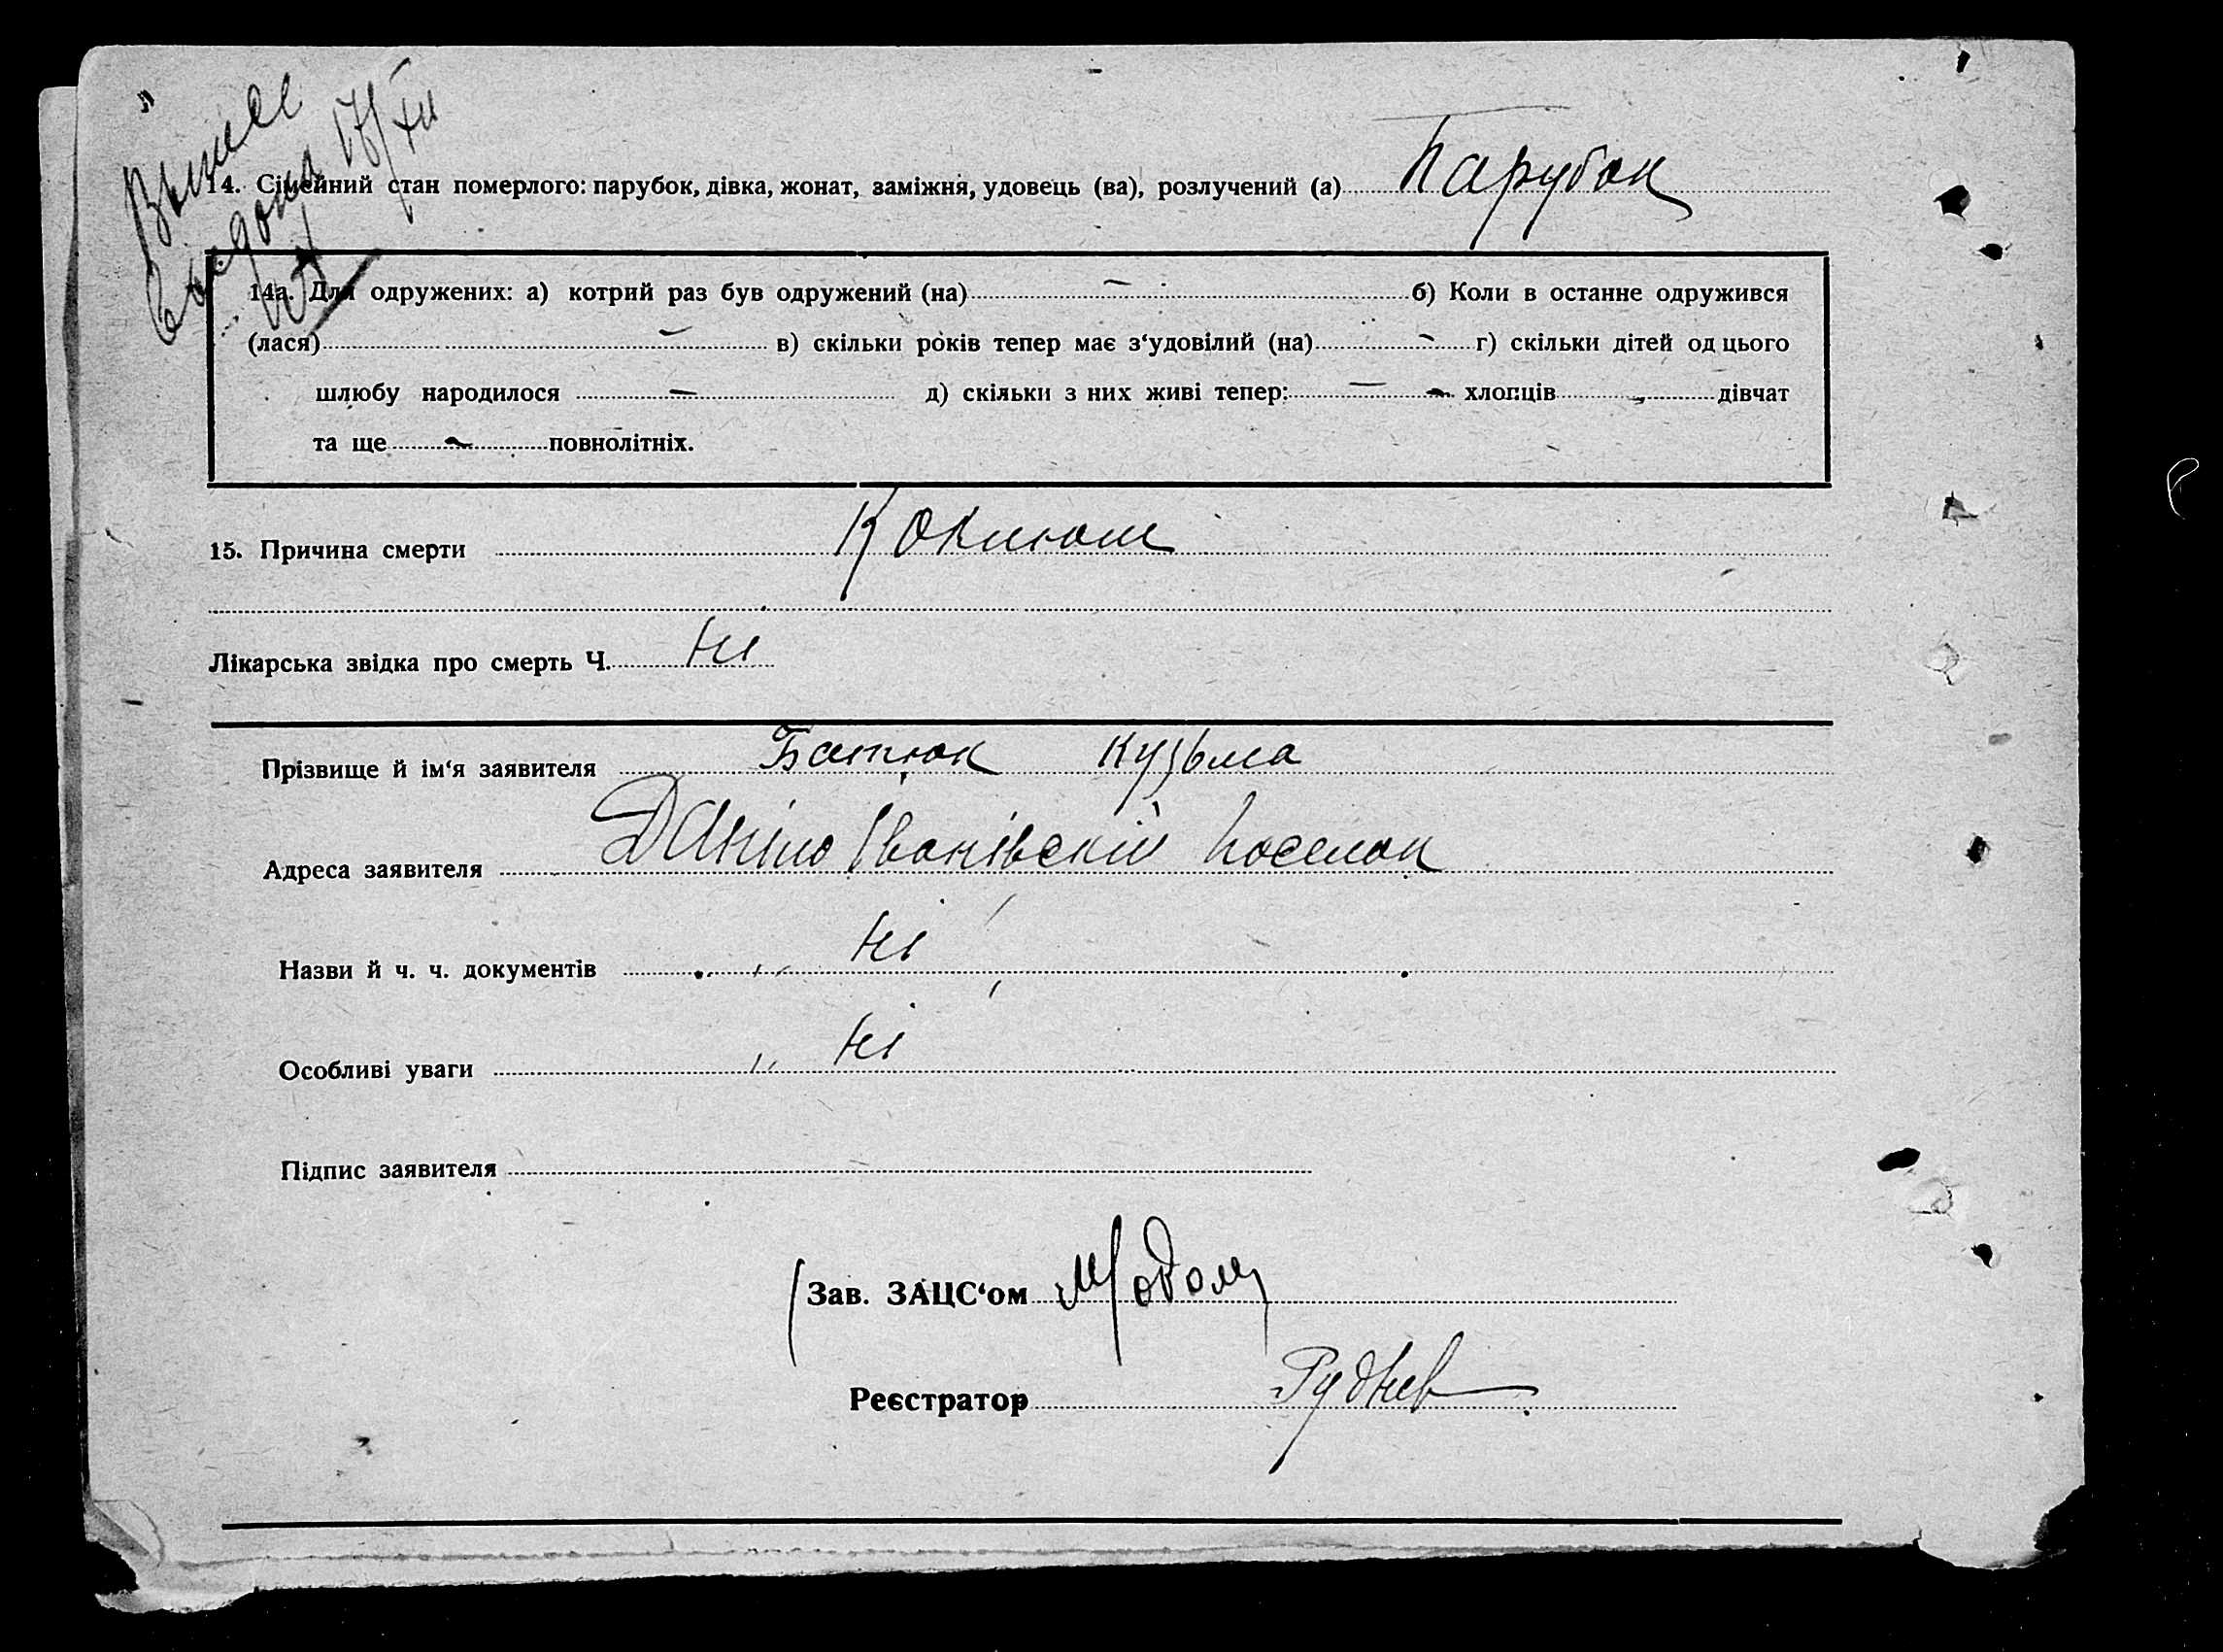 14. Сімейний стан померлого: парубок, дівка, жонат, заміжня, удовець (ва), розлучений (а) Парубок
14а. Для одружених: а) котрий раз був одружений (на) — б) Коли в останне одружився
(лася) — в) скільки років тепер має з‘удовілий (на) — г) скільки дітей од цього
шлюбу народилося — д) скільки з них живі тепер: — хлопців — дівчат
та ще — повнолітніх.
15. Причина смерти Коклюш
Лікарська звідка про смерть Ч. Ні
Прізвище й ім‘я заявителя Батюк Кузьма
Адреса заявителя Даніло Іванівскій поселок
Назви й ч. ч. документів Ні
Особливі уваги Ні
Підпис заявителя
Зав. ЗАЦС‘ом
Реєстратор Руднев